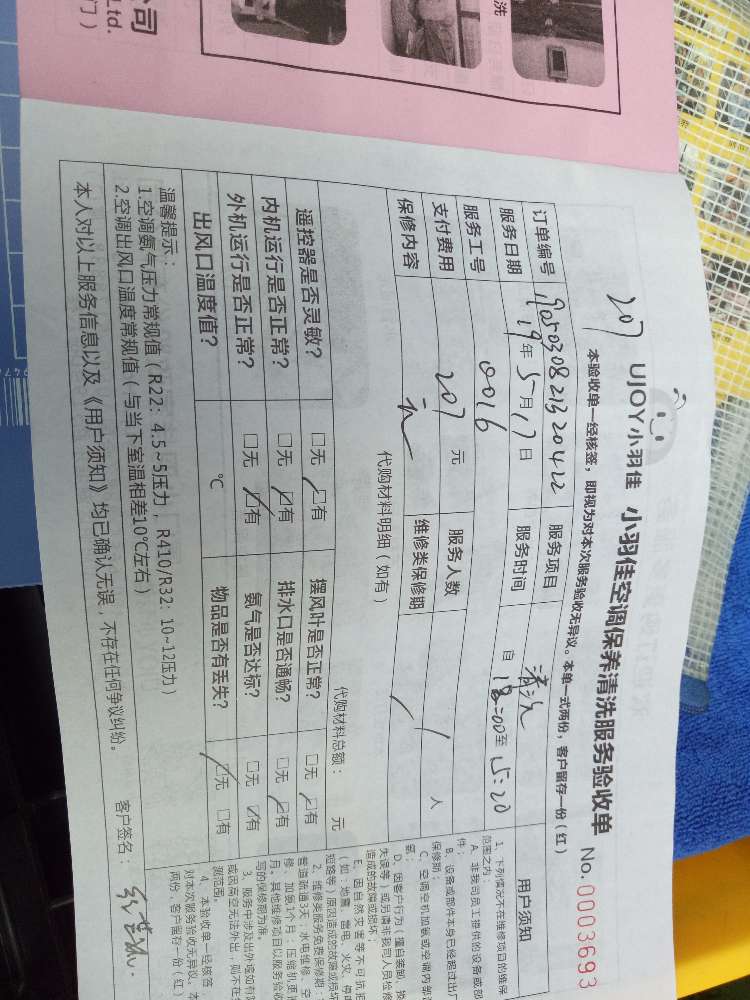 司
Ltd.
门）
洗
207
UJOY小羽佳 小羽佳空调保养清洗服务验收单 No.0003693
本验收单一经核签，即视为对本次服务验收无异议。本单一式两份，客户留存一份（红）
订单编号 1905030821320422 服务项目 清洗
服务日期 19年5月17日 服务时间 自 至 5:20
服务工号 0016
支付费用 207元 服务人数 1人
保修内容 维修类保修期 /
代购材料明细（如有） 代购材料总额： 元
遥控器是否灵敏？ □无 ☑有 摆风叶是否正常？ □无 ☑有
内机运行是否正常？ □无 ☑有 排水口是否通畅？ □无 ☑有
外机运行是否正常？ □无 ☑有 氨气是否达标？ □无 ☑有
出风口温度值？ ℃ 物品是否有丢失？ ☑无 □有
温馨提示：
1.空调氨气压力常规值（R22：4.5~5压力，R410/R32：10~12压力）
2.空调出风口温度常规值（与当下室温相差10℃左右）
本人对以上服务信息以及《用户须知》均已确认无误，不存在任何争议纠纷。 客户签名：
用户须知
1、下列情况不在维修项目的维保
范围之内：
A、非我司员工推件的设备或部
件；
B、设备或部件本身已经超过出厂
保修期；
C、空调空机加氨或空调内部
氨；
D、因客户行为（擅自装卸、
失误等）或另请非我司人员检修
造成的故障或损坏；
E、因自然灾害等不可抗
（如：地震、雷电、火灾、
短路等）原因造成的故障或损
2、维修类服务免费保修期：
管道疏通3天；水电维修、空
修、加氨1个月；压缩机更
月。其他维修项目以服务验收
写的保修期为准。
3、服务中涉及出外墙如有
或因高空无法外出，则不在
测范围。
4、本验收单一经核签
对本次服务验收无异议。本
两份，客户留存一份（红）